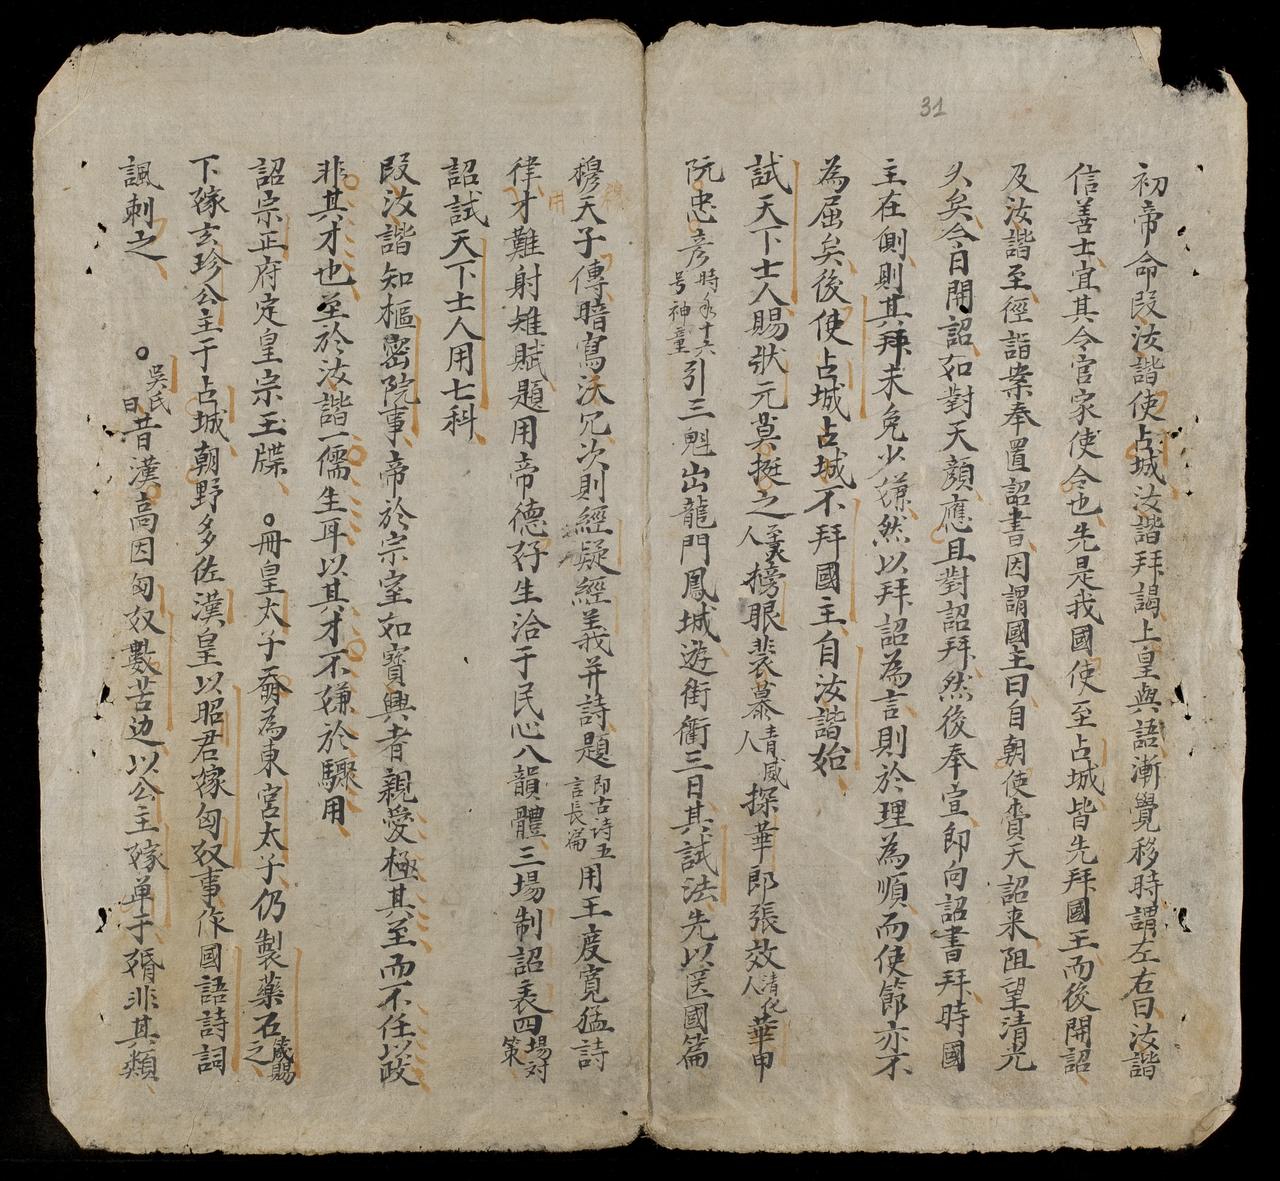 31
初帝命段汝諧使占城汝諧拜謁上皇與語漸覺移時謂左右曰汝諧
信善士宜其令官家使令也先是我國使至占城皆先拜國王而後開詔
及汝諧至徑詣柴奉置詔書因謂國主曰自朝使賫天詔来阻望清光
久矣今日開詔如對天顔應且對詔拜然後奉宣即向詔書拜時國
主在側則其拜未免少嫌然以拜詔為言則於理為順而使節亦不
為屈矣後使占城占城不拜國主自汝諧始
試天下士人賜狀元莫挺之至灵人榜眼裴慕青威人探華郎張效清化人華甲
阮忠彦時年十六号神童引三魁出龍門鳳城遊街衢三日其試法先以医國篇
穆天子傳暗寫沃冗次則經疑經義并詩題即古诗五言長篇用王度寛猛詩
律才難射雉賦題用帝德好生洽于民心八韻體三場制詔表四場对策
詔試天下士人用七科
段汝諧知樞密院事帝於宗室如寶興者親愛極其至而不任以政
非其才也至於汝諧一儒生耳以其才不嫌於驟用
詔宗正府定皇宗玉牒 。冊皇太子奣為東宮太子仍製藥石箴賜之
下嫁玄珍公主于占城朝野多佐漢皇以昭君嫁匈奴事作國語詩詞
諷刺之 。吳氏曰昔漢高因匈奴數苦边以公主嫁单于婚非其類